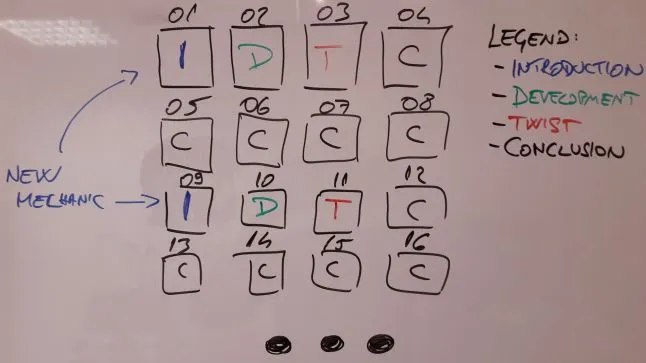 01 02 03 04
I D T C
05 06 07 08
C C C C
09 10 11 12
I D T C
13 14 15 16
C C C C
NEW
MECHANIC
LEGEND:
- INTRODUCTION
- DEVELOPMENT
- TWIST
- CONCLUSION